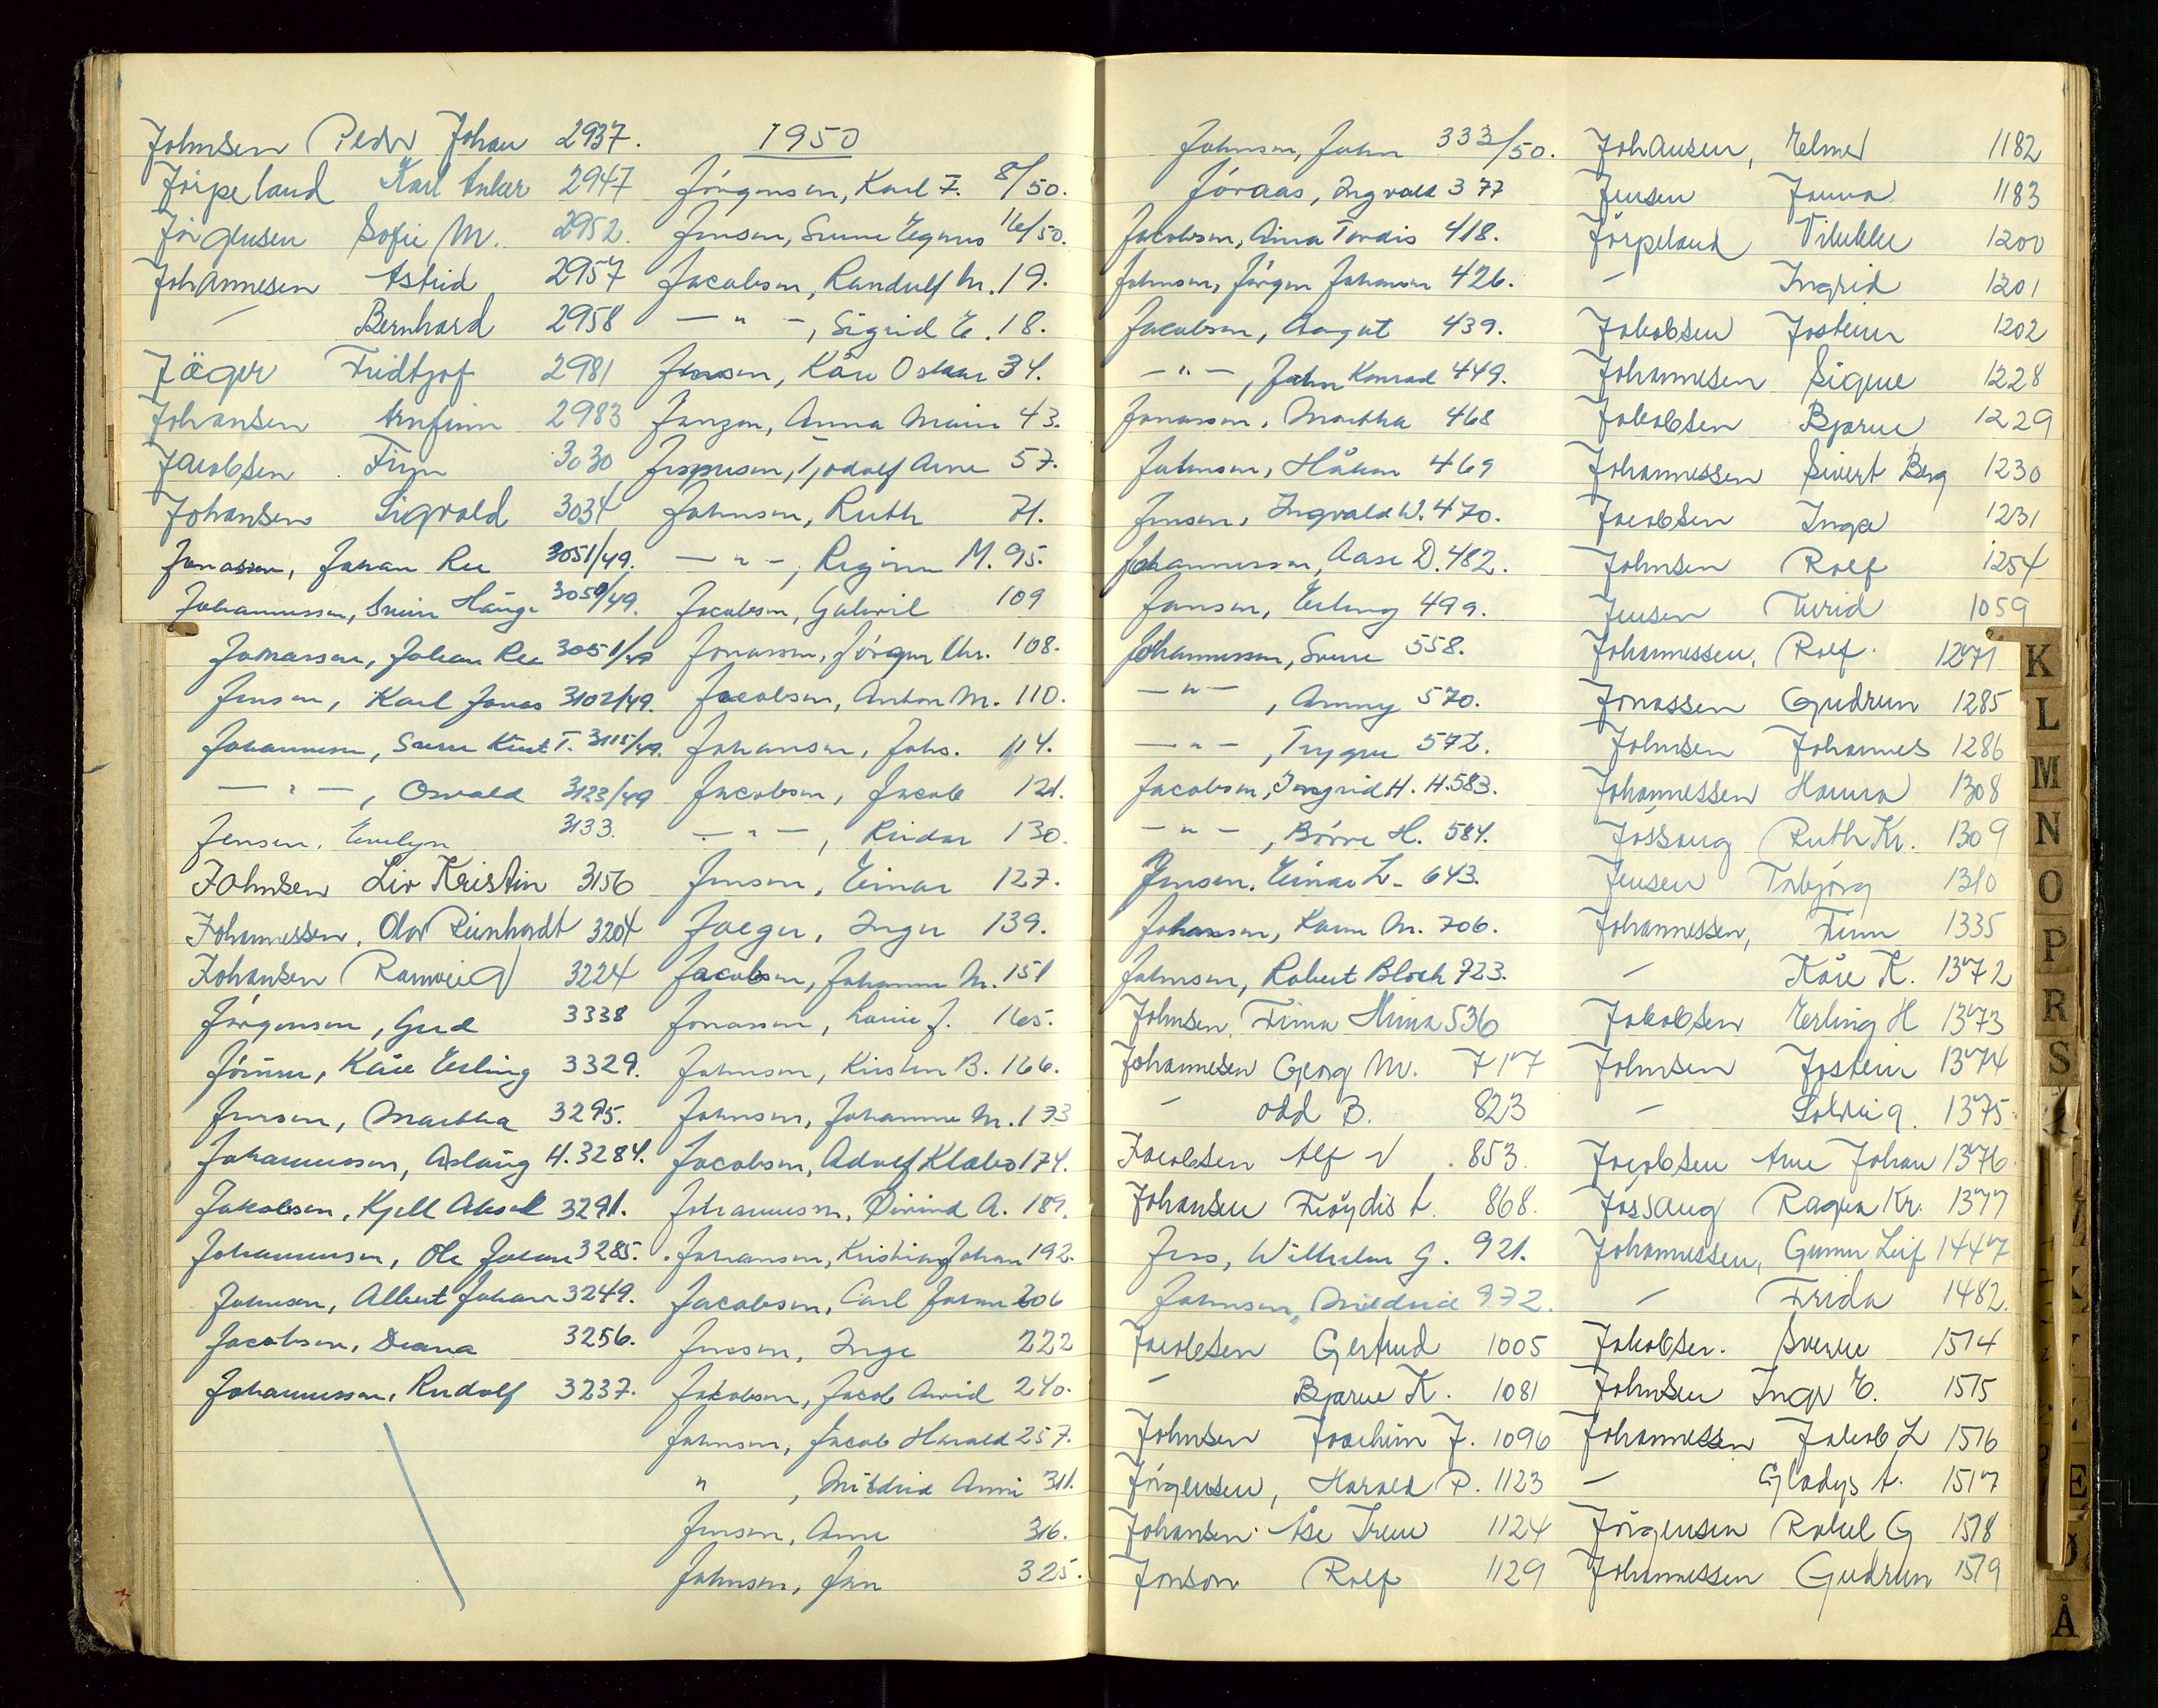 Johnsen Peder Johan 2937.
Jörpeland Karl Anker 2947
Jörgensen Sofie M. 2952.
Johannesen Astrid 2957
— Bernhard 2958
Jäger Fridtjof 2981
Johansen Arnfinn 2983
Jacobsen Finn 3030
Johansen Sigvald 3034
Jonassen, Johan Ree 3051/49.
Johannessen, Svein Hauge 3050/49.
Jonassen, Johan Ree 3051/49
Jensen, Karl Jonas 3102/49.
Johannessen, Sverre Knut T. 3115/49.
— " —, Osvald 3123/49
Jensen, Evelyn 3133.
Johnsen Liv Kristin 3156
Johannessen, Olav Reinhardt 3204
Johansen Rannveig 3224
Jörgensen, Gerd 3338
Kåre Erling 3329.
Jensen, Martha 3295.
Johannessen, Aslaug H. 3284.
Jakobsen, Kjell Aksel 3291.
Johannessen, Ole Johan 3285.
Johnsen, Albert Johan 3249.
Jacobsen, Diana 3256.
Johannessen, Rudolf 3237.
1950
Jörgensen, Karl F. 8/50.
Jensen, 16/50.
Jacobsen, Randulf M. 19.
— " —, Sigrid E. 18.
Jensen, Kåre Oskar 34.
Anna Marie 43.
Jespersen, Tjodolf Arne 57.
Johnsen, Ruth 71.
— " —, Regine M. 95.
Jacobsen, Gabriel 109
Jonassen, Jörgen Chr. 108.
Jacobsen, Anton M. 110.
Johansen, Johs. 114.
Jacobsen, Jacob 121.
— " —, Reidar 130.
Jensen, Einar 127.
Jaeger, Inger 139.
Jacobsen, Johanne M. 151
Jonassen, J. 165.
Johnsen, Kirsten B. 166.
Johnsen, Johanne M. 173
Jacobsen, Adolf Klæbo 174.
Johannessen, Øivind A. 189.
Johansen, Kristian Johan 192.
Jacobsen, Carl Johan 206
Jensen, Inge 222
Jakobsen, Jacob Arvid 240.
Johnsen, Jacob Harald 257.
", Mildrid Anni 311.
Jensen, Arne 316.
Johnsen, Jan 325.
Johnsen, John 333/50.
Jöraas, Ingvald 377
Jacobsen, Aina Tordis 418.
Johnsen, Jörgen Johansen 426.
Jacobsen, Aagot 439.
— " —, John Konrad 449.
Jonassen, Martha 468
Johnsen, Håkon 469
Jensen, Ingvald W. 470.
Johannessen, Aase D. 482.
Jansen, Erling 499.
Johannessen, Sverre 558.
— " —, Anny 570.
— " —, Trygve 572.
Jacobsen, Ingrid H. H. 583.
— " —, Börre H. 584.
Jensen, Einar L. 643.
Johansen, Karen M. 706.
Johnsen, Robert Bloch 723.
Johnsen, 536
Johannesen Georg M. 717
— Odd B. 823
Jacobsen Alf V 853.
Johansen Fröydis A. 868.
Jess, Wilhelm G. 921.
Johnsen, Mildrid 972.
Jacobsen Gertrud 1005
— Bjarne K. 1081
Johnsen Joachim J. 1096
Jörgensen, Harald P. 1123
Johansen Åse Irene 1124
Jonson Rolf 1129
Johansen, Elmer 1182
Jensen Janna 1183
Jörpeland 1200
— Ingrid 1201
Jakobsen Jostein 1202
Johannesen Signe 1228
Jakobsen Bjarne 1229
Johannessen Sivert Berg 1230
Jacobsen Inga 1231
Johnsen Rolf 1254
Jensen Turid 1059
Johannessen, Rolf. 1271
Jonassen Gudrun 1285
Johnsen Johannes 1286
Johannessen Hanna 1308
Jössang Ruth Kr. 1309
Jensen Torbjörg 1310
Johannessen, Finn 1335
— Kåre K. 1372
Jakobsen Erling H 1373
Johnsen Jostein 1374
— Solveig. 1375.
Jacobsen Arne Johan 1376
Jössang Ragna Kr. 1377
Johannessen, Gunnar Leif 1447
— Frida 1482.
Jakobsen. Sverre 1514
Johnsen Inger E. 1515
Johannessen Jakob L 1516
— Gladys A. 1517
Jörgensen Rakel G 1518
Johannessen Gudrun 1519
K
L
M
N
O
P
R
S
E
Å